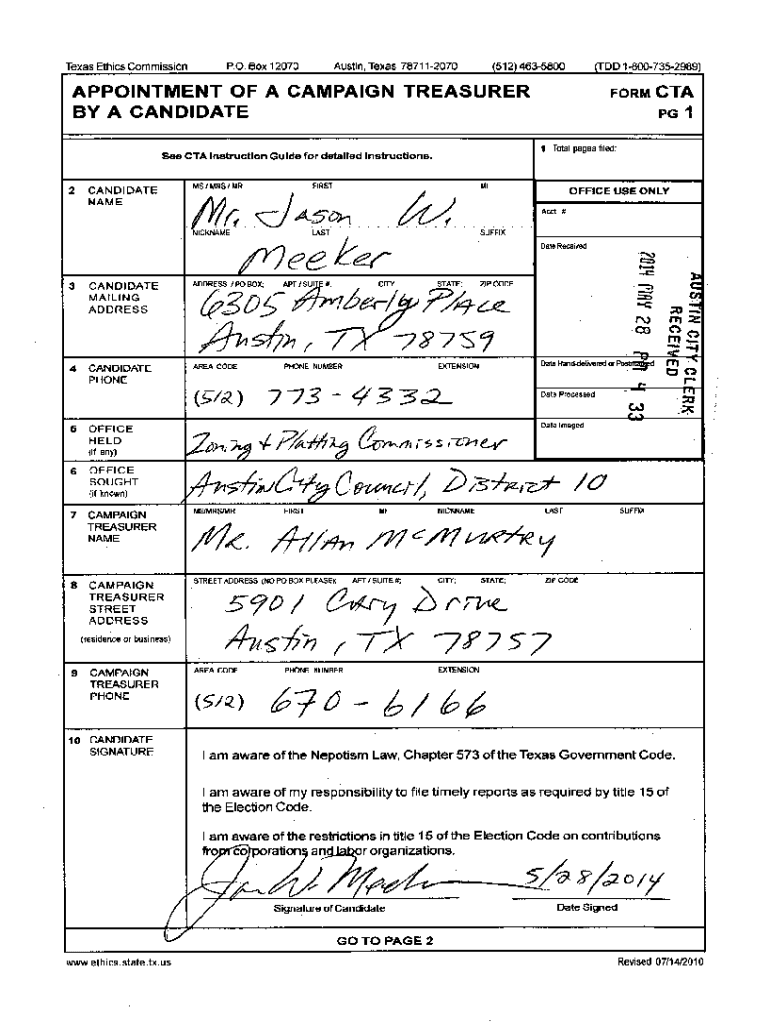 Texas Ethics Commission P.O. Box 12070 Austin, Texas 78711-2070 (512) 463-5800 (TDD 1-800-735-2989)
APPOINTMENT OF A CAMPAIGN TREASURER
BY A CANDIDATE
FORM CTA
PG 1
See CTA Instruction Guide for detailed instructions.
1 Total pages filed:
2 CANDIDATE
NAME
MS / MRS / MR FIRST MI
Mr. Jason W.
NICKNAME LAST SUFFIX
Meeker
OFFICE USE ONLY
Acct. #
Date Received
AUSTIN CITY CLERK
RECEIVED
2014 MAY 28 PM 4 33
3 CANDIDATE
MAILING
ADDRESS
ADDRESS / PO BOX; APT / SUITE #; CITY STATE; ZIP CODE
6305 Amberly Place
Austin, TX 78759
4 CANDIDATE
PHONE
AREA CODE PHONE NUMBER EXTENSION
(512) 773-4332
Date Hand-delivered or Postmarked
Date Processed
Date Imaged
5 OFFICE
HELD
(if any)
Zoning + Platting Commissioner
6 OFFICE
SOUGHT
(if known)
Austin City Council, District 10
7 CAMPAIGN
TREASURER
NAME
MS/MRS/MR FIRST MI NICKNAME LAST SUFFIX
Mr. Allan McMurtry
8 CAMPAIGN
TREASURER
STREET
ADDRESS
(residence or business)
STREET ADDRESS (NO PO BOX PLEASE); APT / SUITE #; CITY; STATE; ZIP CODE
5901 Cary Drive
Austin, TX 78757
9 CAMPAIGN
TREASURER
PHONE
AREA CODE PHONE NUMBER EXTENSION
(512) 670-6166
10 CANDIDATE
SIGNATURE
I am aware of the Nepotism Law, Chapter 573 of the Texas Government Code.
I am aware of my responsibility to file timely reports as required by title 15 of
the Election Code.
I am aware of the restrictions in title 15 of the Election Code on contributions
from corporations and labor organizations.
5/28/2014
Signature of Candidate Date Signed
GO TO PAGE 2
www.ethics.state.tx.us Revised 07/14/2010